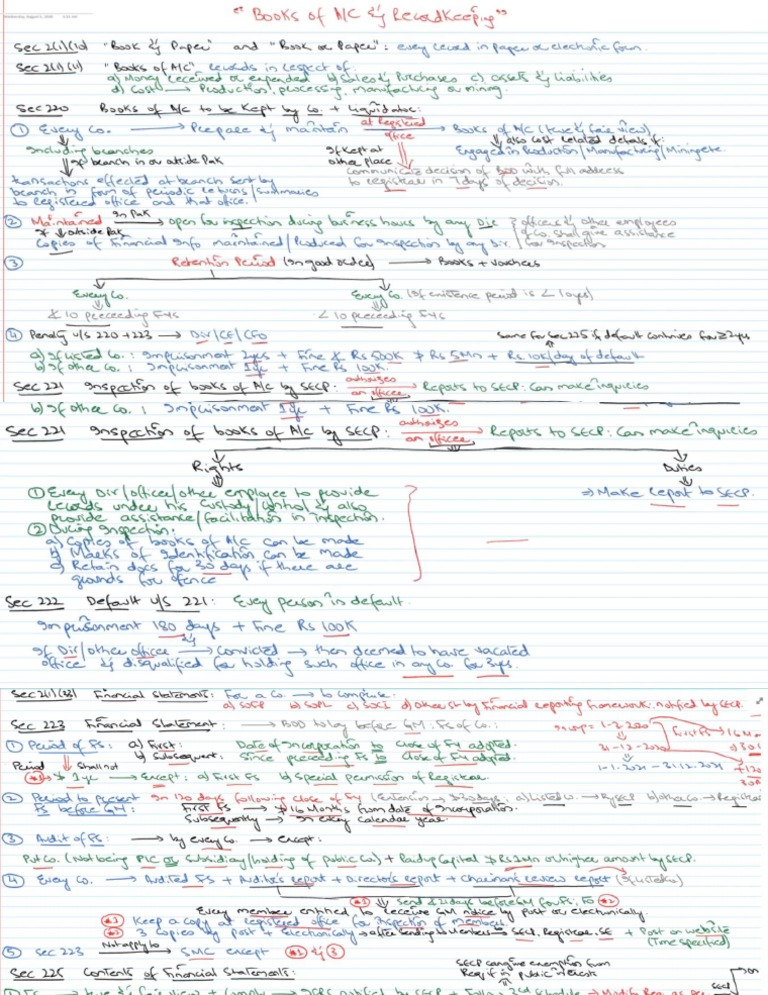 "Books of A/C & RecordKeeping"
Sec 2(1)(10) "Book & Paper" and "Book or Paper": every record in paper or electronic form.
Sec 2(1)(11) "Books of A/C" records in respect of:
a) Money received or expended b) Sales & Purchases c) Assets & Liabilities
d) Cost → Production, processing, manufacturing or mining.
Sec 220 Books of A/c to be kept by Co. + Liquidator:
① Every Co. → Prepare & maintain at Registered office → Books of A/C (true & fair view)
↓ also cost related details if:
Including branches
If kept at other place
Engaged in Production/Manufacturing/Mining etc.
if branch in or outside Pak
Communicate decision of BOD with full address
to registrar in 7 days of decision.
transactions effected at branch sent by
branch to form of periodic returns/summaries
to registered office and that office.
② Maintained in Pak → open for inspection during business hours by any Dir
outside Pak
Copies of Financial Info maintained/Produced for inspection by any Dir.
officers & other employees
of Co. shall give assistance
for inspection
③ Retention Period (in good order) → Books + vouchers
Every Co. Every Co. (if existence period is < 10yrs)
≮ 10 preceeding FYs < 10 preceeding FYs
④ Penalty u/s 220 + 223 → Dir/CE/CFO same for Sec 225 if default continues for ≥ 2yrs
a) If listed Co.: Imprisonment 2yrs + Fine ≮ Rs 500K ≯ Rs 5Mn + Rs 10K/day of default
b) If other Co.: Imprisonment 1yr + Fine Rs 100K.
Sec 221 Inspection of books of A/c by SECP: authorizes an officer → Reports to SECP: Can make inquiries
b) If other Co.: Imprisonment 1yr + Fine Rs 100K.
Sec 221 Inspection of books of A/c by SECP: authorizes an officer → Reports to SECP: Can make inquiries
Rights Duties
① Every Dir/officer/other employee to provide
records under his custody/control & also
provide assistance/facilitation in inspection.
⇒ Make report to SECP.
② During inspection:
a) Copies of books of A/C can be made
b) Marks of identification can be made
c) Retain docs for 30 days if there are
grounds for offence
Sec 222 Default u/s 221: Every person in default.
Imprisonment 180 days + Fine Rs 100K
&
If Dir/other officer → Convicted → then deemed to have vacated
office & disqualified for holding such office in any Co. for 3yrs.
Sec 2(1)(33) Financial Statements: For a Co. → to comprise:
a) SOFP b) SOPL c) SOCI d) Other st by Financial reporting framework: notified by SECP.
Sec 223 Financial Statement: → BOD to lay before GM: FS of Co.:
① Period of FS: a) First: Date of incorporation to close of FY adopted.
b) Subsequent: Since preceding FS to close of FY adopted.
Period shall not
*① > 1yr → Except: a) First FS b) Special permission of Registrar
31-12-2020
1-1-2021 - 31-12-2021
First FS → 16 Mn
② Period to present FS before GM: In 120 days following close of FY
First FS → ≯ 16 Months from date of incorporation.
Subsequently → In every calendar year.
③ Audit of FS: → by every Co. → except:
Pvt Co. (Not being PIC or Subsidiary/holding of public Co) + Paidup Capital ≯ Rs 1Mn or higher amount by SECP.
④ Every Co. → Audited FS + Auditor's report + Director's report + Chairman's review report (if listed)
*① Send 21 days before GM for FS *②
Every member entitled to receive GM notice by post or electronically.
*① Keep a copy at registered office for inspection of members
*② 3 copies by post & electronically → after sending to members → SECP, Registrar, SE + Post on website
(Time specified)
⑤ Sec 223 Not apply to → SMC except *① & ③
Sec 225 Contents of Financial Statements:
SECP can give exemption from
Req. if in public interest